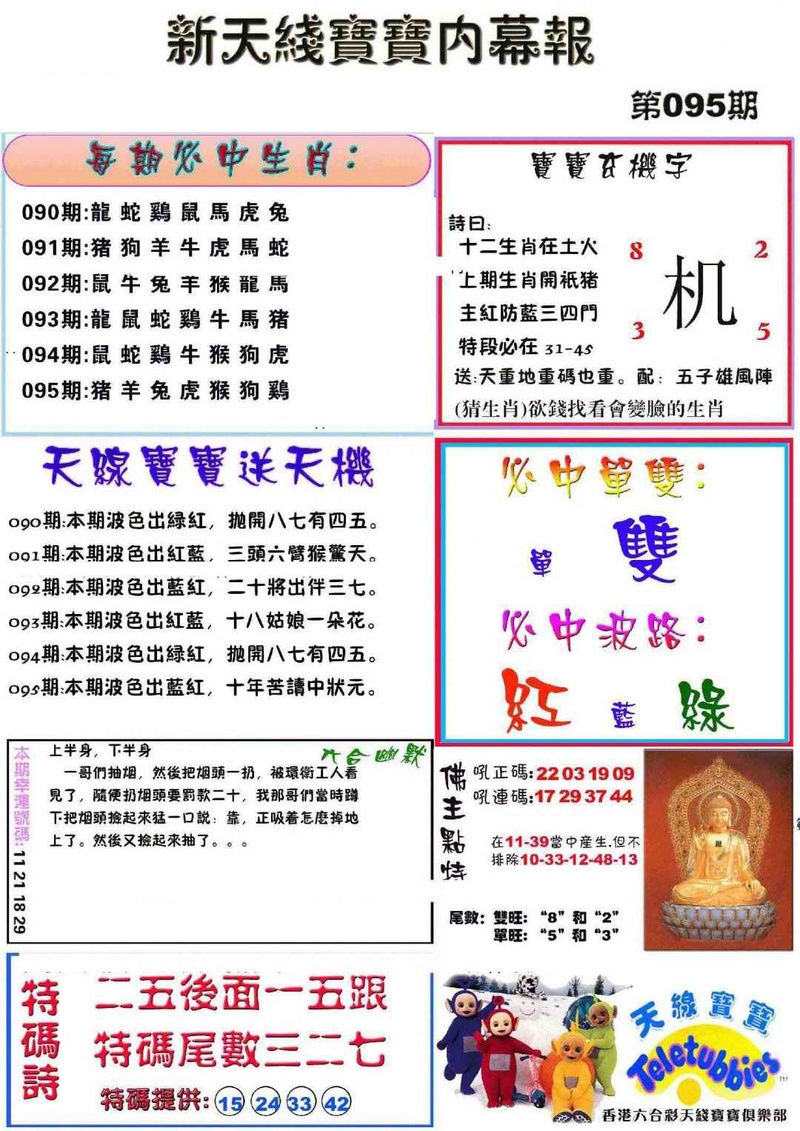 新天綫寶寶内幕報
第095期
每期必中生肖：
090期:龍蛇鷄鼠馬虎兔
091期:猪狗羊牛虎馬蛇
092期:鼠牛兔羊猴龍馬
093期:龍鼠蛇鷄牛馬猪
094期:鼠蛇鷄牛猴狗虎
095期:猪羊兔虎猴狗鷄
寶寶玄機字
詩曰:
十二生肖在土火
上期生肖開祇猪
主紅防藍三四門
特段必在 31-45
8 2
机
3 5
送:天重地重碼也重。配：五子雄風陣
(猜生肖)欲錢找看會變臉的生肖
天線寶寶送天機
090期:本期波色出綠紅，抛開八七有四五。
091期:本期波色出紅藍，三頭六臂猴驚天。
092期:本期波色出藍紅，二十將出伴三七。
093期:本期波色出紅藍，十八姑娘一朵花。
094期:本期波色出綠紅，抛開八七有四五。
095期:本期波色出藍紅，十年苦讀中狀元。
必中單雙：
單 雙
必中波路：
紅 藍 綠
本期幸運號碼:11 21 18 29
六合幽默
上半身，下半身
一哥們抽烟，然後把烟頭一扔，被環衛工人看
見了，隨便扔烟頭要罰款二十，我那哥們當時蹲
下把烟頭撿起來猛一口説：靠，正吸着怎麽掉地
上了。然後又撿起來抽了。。。
佛主點特
吼正碼:22 03 19 09
吼連碼:17 29 37 44
在11-39當中産生.但不
排除10-33-12-48-13
尾數：雙旺：“8”和“2”
單旺：“5”和“3”
特碼詩
二五後面一五跟
特碼尾數三二七
特碼提供: 15 24 33 42
天線寶寶
Teletubbies
TM
香港六合彩天綫寶寶俱樂部